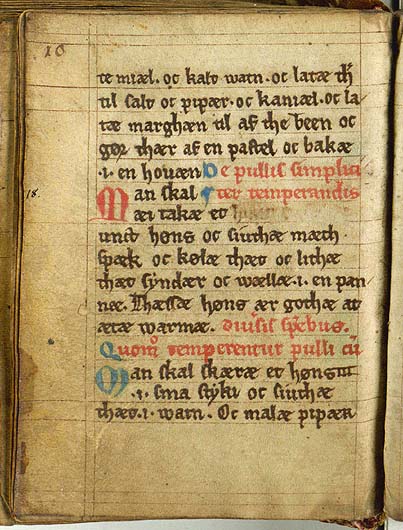 10
te miæl. oc kalt watn. oc latæ th
til salt oc pipær. oc kaniæl. oc la
tæ marghæn til af the been oc
gør thær af en pastel oc bakæ
.i. en howæn De pullis simplici
18. Man skal ter temperandis
ær takæ et
unct høns oc siuthæ mæth
spæk oc kølæ thæt oc lithæ
thæt syndær oc wællæ .i. en pan
næ. Thæssæ høns ær gothæ at
ætæ warmæ. diuersis speciebus.
Quomodo temperentur pulli cum
Man skal skæræ et høns
.i. sma styki oc siuthæ
thæt .i. watn. Oc malæ pipær